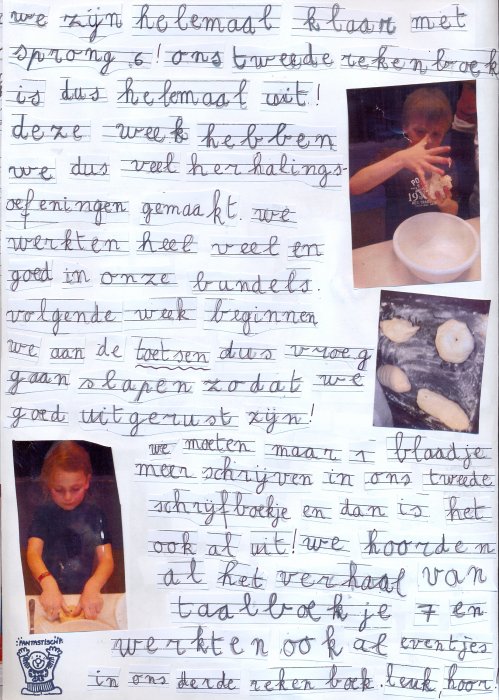 we zijn helemaal klaar met
sprong 6! ons tweede rekenboek
is dus helemaal uit!
deze week hebben
we dus veel herhalings-
oefeningen gemaakt. we
werkten heel veel en
goed in onze bundels.
volgende week beginnen
we aan de toetsen dus vroeg
gaan slapen zodat we
goed uitgerust zijn!
we moeten maar 1 blaadje
meer schrijven in ons tweede
schrijfboekje en dan is het
ook al uit! we hoorden
al het verhaal van
taalboekje 7 en
werkten ook al eventjes
in ons derde rekenboek. leuk, hoor
FANTASTISCH!